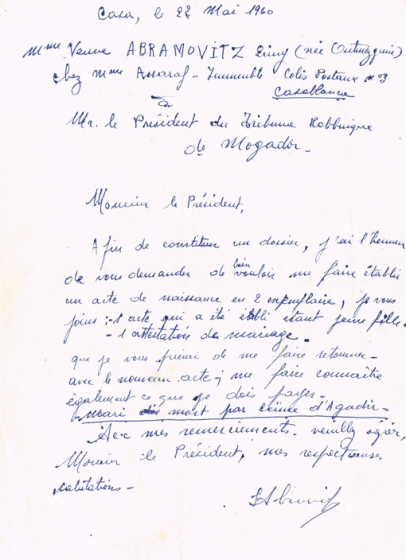 Casa, le 22 Mai 1960
Mme Veuve ABRAMOVITZ (née
chez Mme Assaraf - Immeuble Colis Postaux n° 3
Casablanca
à
Mr. le Président du Tribunal Rabbinique
de Mogador -
Monsieur le Président,
Afin de constituer un dossier, j'ai l'honneur
de vous demander de bien vouloir me faire établir
un acte de naissance en 2 exemplaire, je vous
joins :- 1 acte qui a été établi étant jeune fille -
- 1 attestation de mariage.
que je vous prierai de me faire retourner -
avec le nouveau acte; me faire connaître
également ce que je dois payer -
mari mort par séisme d'Agadir -
Avec mes remerciements. veuillez agréer,
Monsieur le Président, mes respectueuses
salutations -